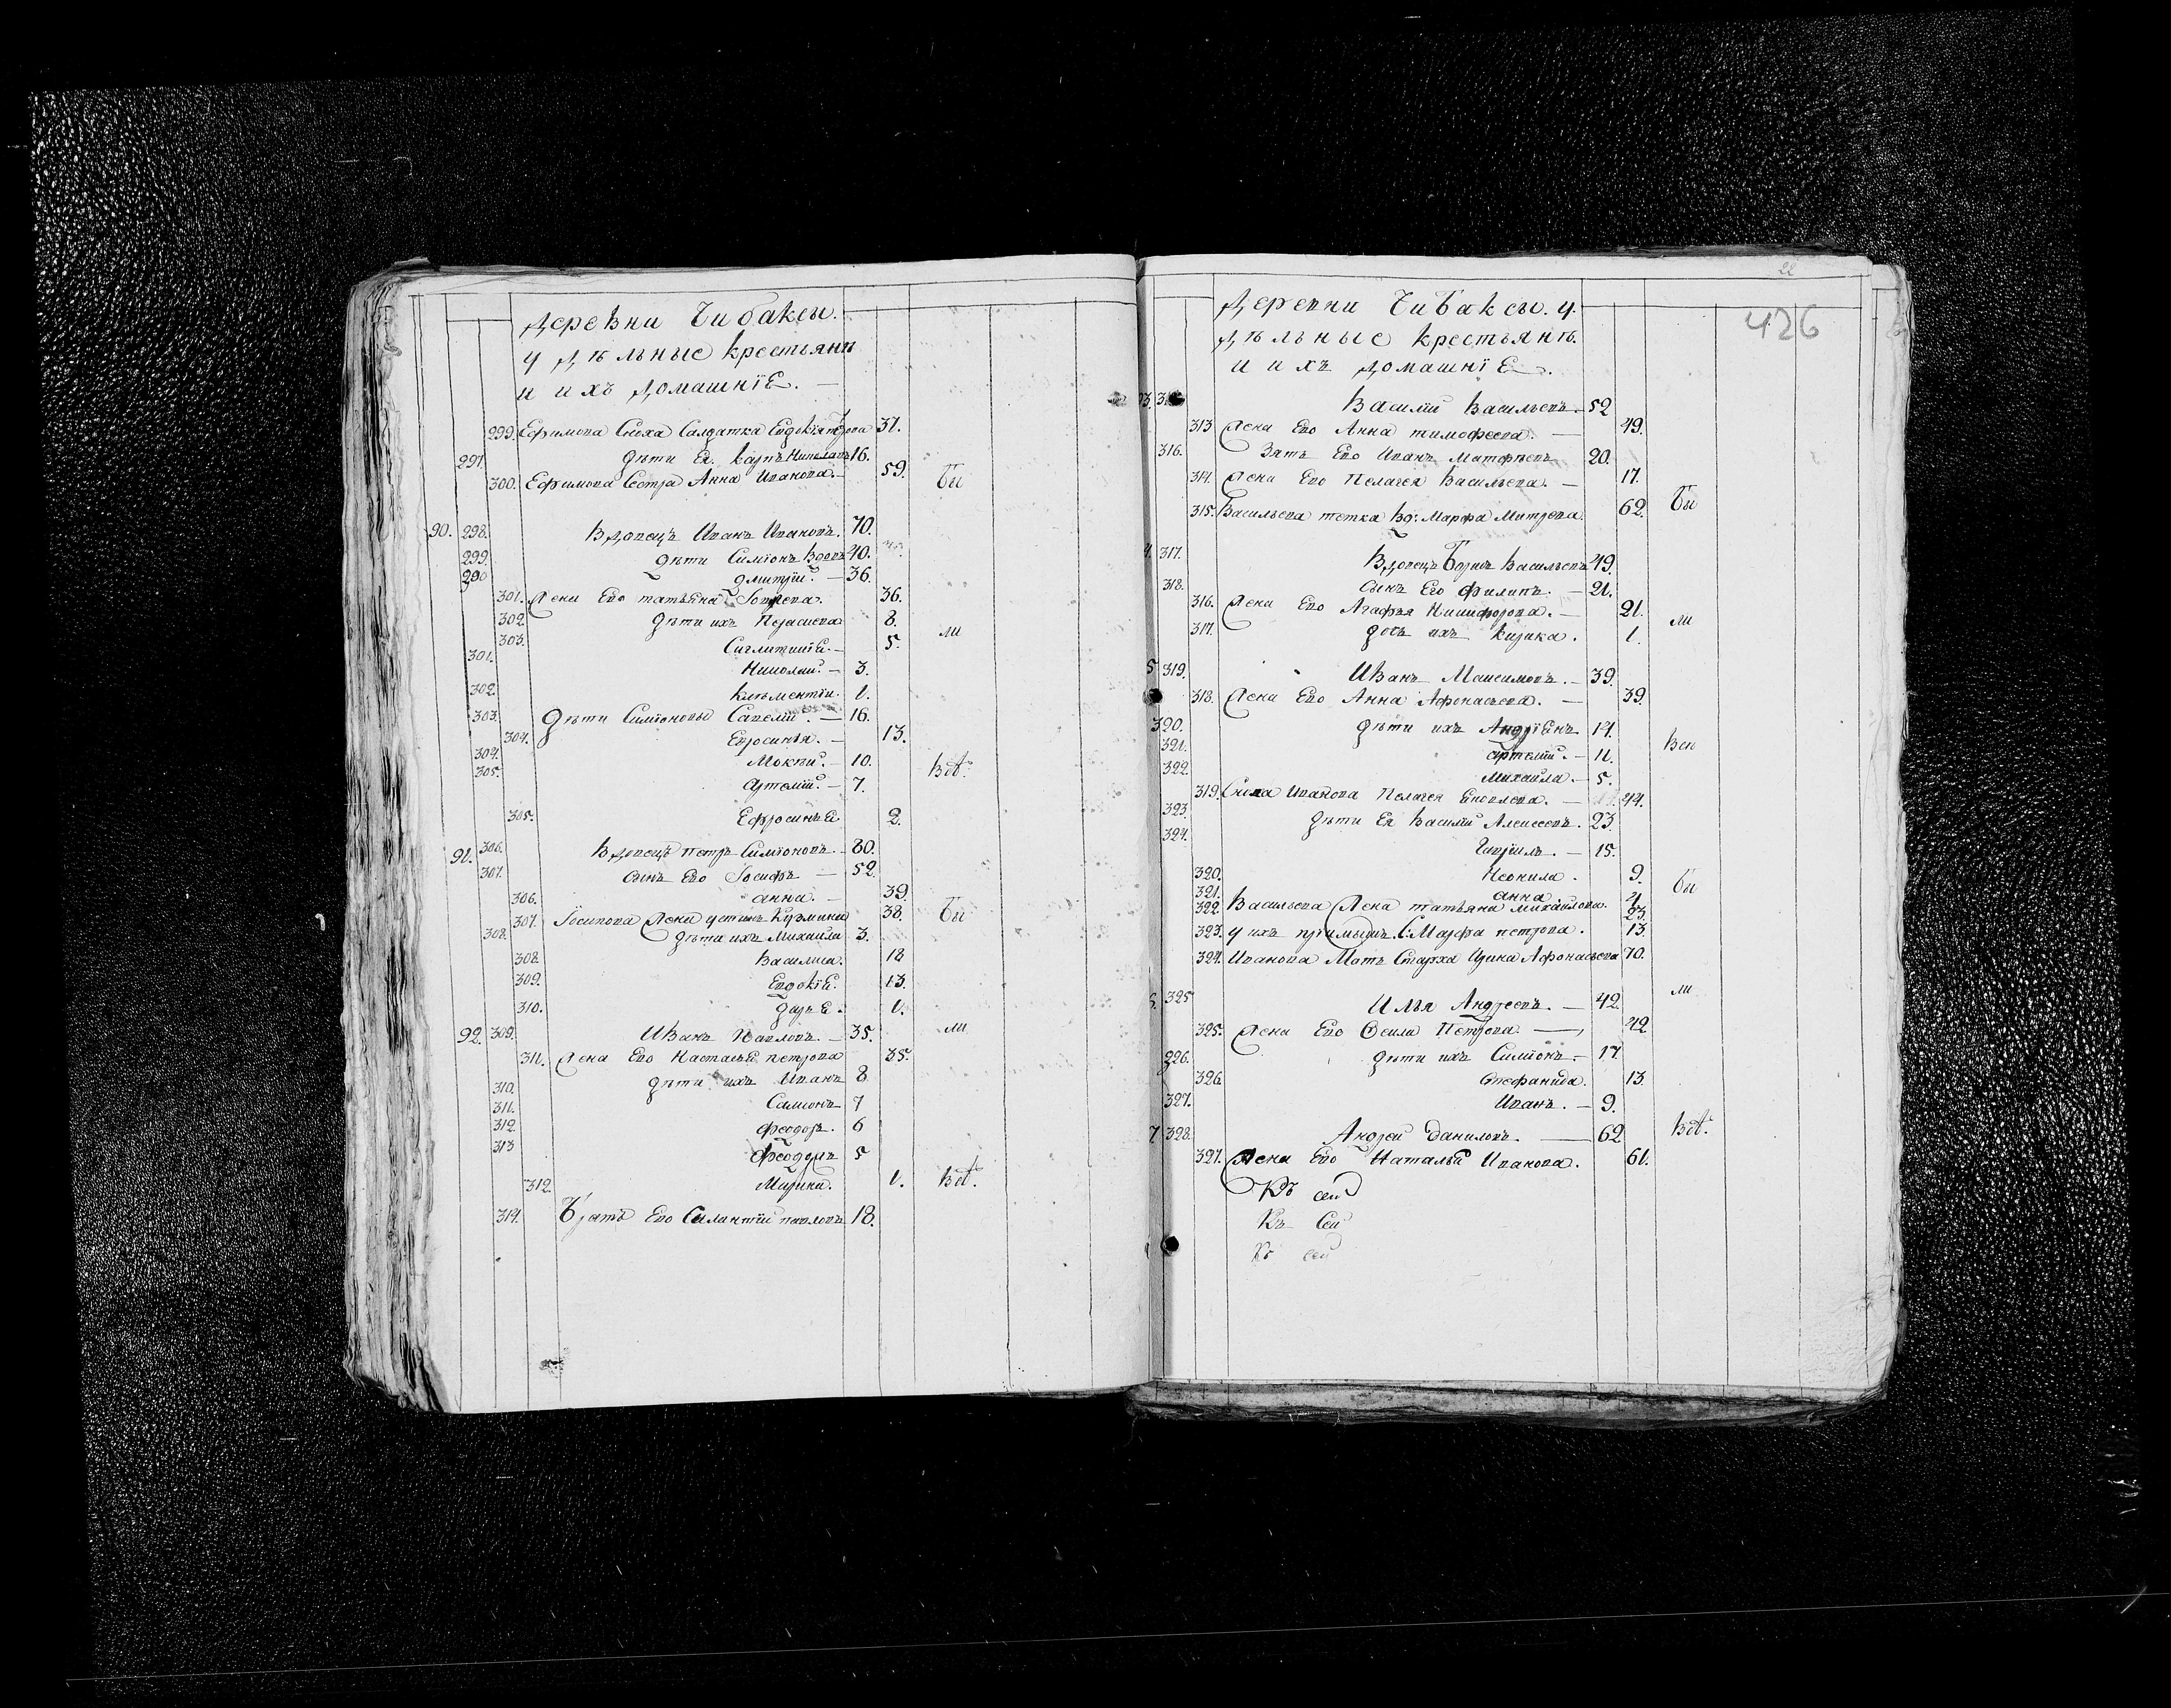 Деревни Чибаксы.
удѣльные крестьянѣ
и ихъ домашнїе. —
299. Ефимова Сноха Салдатка Евдокїя 37.
297. дѣти Ея. карпъ Николаевъ 16.
300. Ефимова Сестра Анна Иванова. — 59. бы
90. 298. Вдовецъ Иванъ Ивановъ. 70.
299. дѣти Симїонъ Вдовъ 40.
290 дмитрїй. — 36.
301. Жена Ево татьяна 36.
302. дѣти ихъ 8.
303. — 5. ли
301. Николай. — 3.
302. Клѣментїи. 1.
303. дѣти Симїоновы Савелїй. — 16.
304. Евросинья. — 13.
304. Мокѣй. — 10. всѣ.
305. Артемїй. — 7.
305. Ефросинья 2.
91. 306. Вдовецъ петръ Симїоновъ. — 80.
307. сынъ Ево Іосифъ — 52
306. анна. — 39.
307. Іосипова Жена устинья Кузмина 38. бы
308. дѣти ихъ Михаила 3.
308. Василиса. 18
309. Евдокїя. 13.
310. дарья. 1.
92. 309. Иванъ Павловъ. — 35. ли
311. Жена Ево Настасья петрова 35.
310. дѣти ихъ Иванъ 8
311. Самсонъ 7
312 Феодоръ. 6
313 Феодоръ 5
312. Марина. 1. всѣ.
314. Братъ Ево Силантїй павловъ 18.
22
426
Деревни Чибаксы. у.
дѣльные крестьянѣ.
и ихъ домашнїе.
Василїй Васильевъ. — 52
313 Жена Ево Анна тимофеева. — 49.
316. Зять Ево Иванъ Матфѣевъ 20.
314. Жена Ево Пелагея Васильева. — 17.
315. Васильева тетка Вд: Марфа Митрева 62. бы
317. Вдовецъ Борисъ Васильевъ 49.
318. сынъ Его филипъ. — 21.
316. Жена Ево Агафья Никифорова. — 21. ли
317. дочь ихъ кирика. 1.
5 319. Иванъ Максимовъ. — 39.
318. Жена Ево Анна Афонасьева. — 39.
320. дѣти ихъ Андрїенъ 14.
321. артемїй. — 11. всѣ
322. Михайла. — 5.
319. Сноха Иванова Пелагея Яковлева. — 44.
323. дѣти Ея Василїй Алексеевъ. 23.
324. Гаврилъ. — 15.
320. Неонила. 9.
321. анна 4 бы
322. Васильева Жена татьяна Михайлова. 23.
323. у ихъ Марфа петрова. 13.
324. Иванова Мать Старха Ирина Афонасьева 70.
325 Илья Андреевъ. — 42. ли
325. Жена Ево Фекла Петрова. — 42
226. дѣти ихъ Симїонъ. — 17
326 Стефанида. 13.
327. Иванъ. — 9.
7 328. Андрей Даниловъ. — 62 всѣ.
327. Жена Ево Наталья Иванова. 61.
Къ сей
Къ Сей
Къ сей